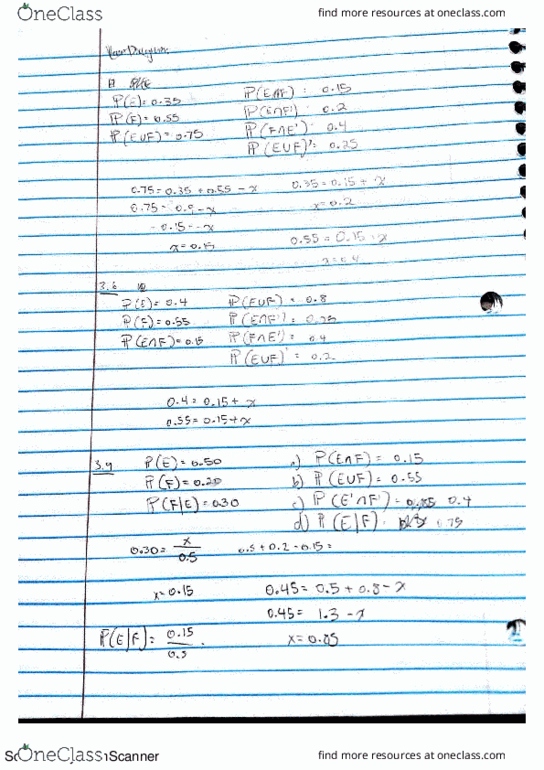 OneClass
find more resources at oneclass.com
Venn Diagram:
P(E) = 0.35
P(F) = 0.55
P(E∪F) = 0.75
P(E∩F) : 0.15
P(E∩F') : 0.2
P(F∩E') : 0.4
P(E∪F)' = 0.25
0.75 = 0.35 + 0.55 - x
0.75 = 0.9 - x
-0.15 = -x
x = 0.15
0.35 = 0.15 + x
x = 0.2
0.55 = 0.15 + x
x = 0.4
3.6
P(E) = 0.4
P(F) = 0.55
P(E∩F) = 0.15
P(E∪F) = 0.8
P(E∩F') = 0.25
P(F∩E') = 0.4
P(E∪F)' = 0.2
0.4 = 0.15 + x
0.55 = 0.15 + x
3.9
P(E) = 0.50
P(F) = 0.20
P(F|E) = 0.30
a) P(E∩F) = 0.15
b) P(E∪F) = 0.55
c) P(E'∩F') = 0.85 0.4
d) P(E|F) = 0.75
0.30 = x/0.5
0.5 + 0.2 - 0.15 =
x = 0.15
0.45 = 0.5 + 0.8 - x
0.45 = 1.3 - x
x = 0.85
P(E|F) = 0.15/0.5
OneClass
Scanner
find more resources at oneclass.com